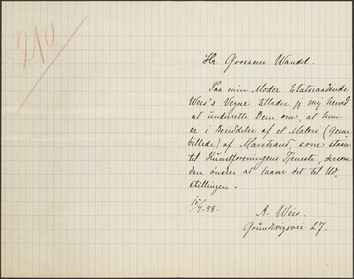 210
Hr. Grosserer Wandel.
Paa min Moder Etatsraadinde
Weis's Vegne tillader jeg mig herved
at underrette Dem om, at hun
er i Besiddelse af et Maleri (Genre
billede) af Marstrand, som staaer
til Kunstforeningens Tjeneste, dersom
den ønsker at laane det til Ud-
stillingen.
98.
A. Weis.
Grundtvigsvei 27.